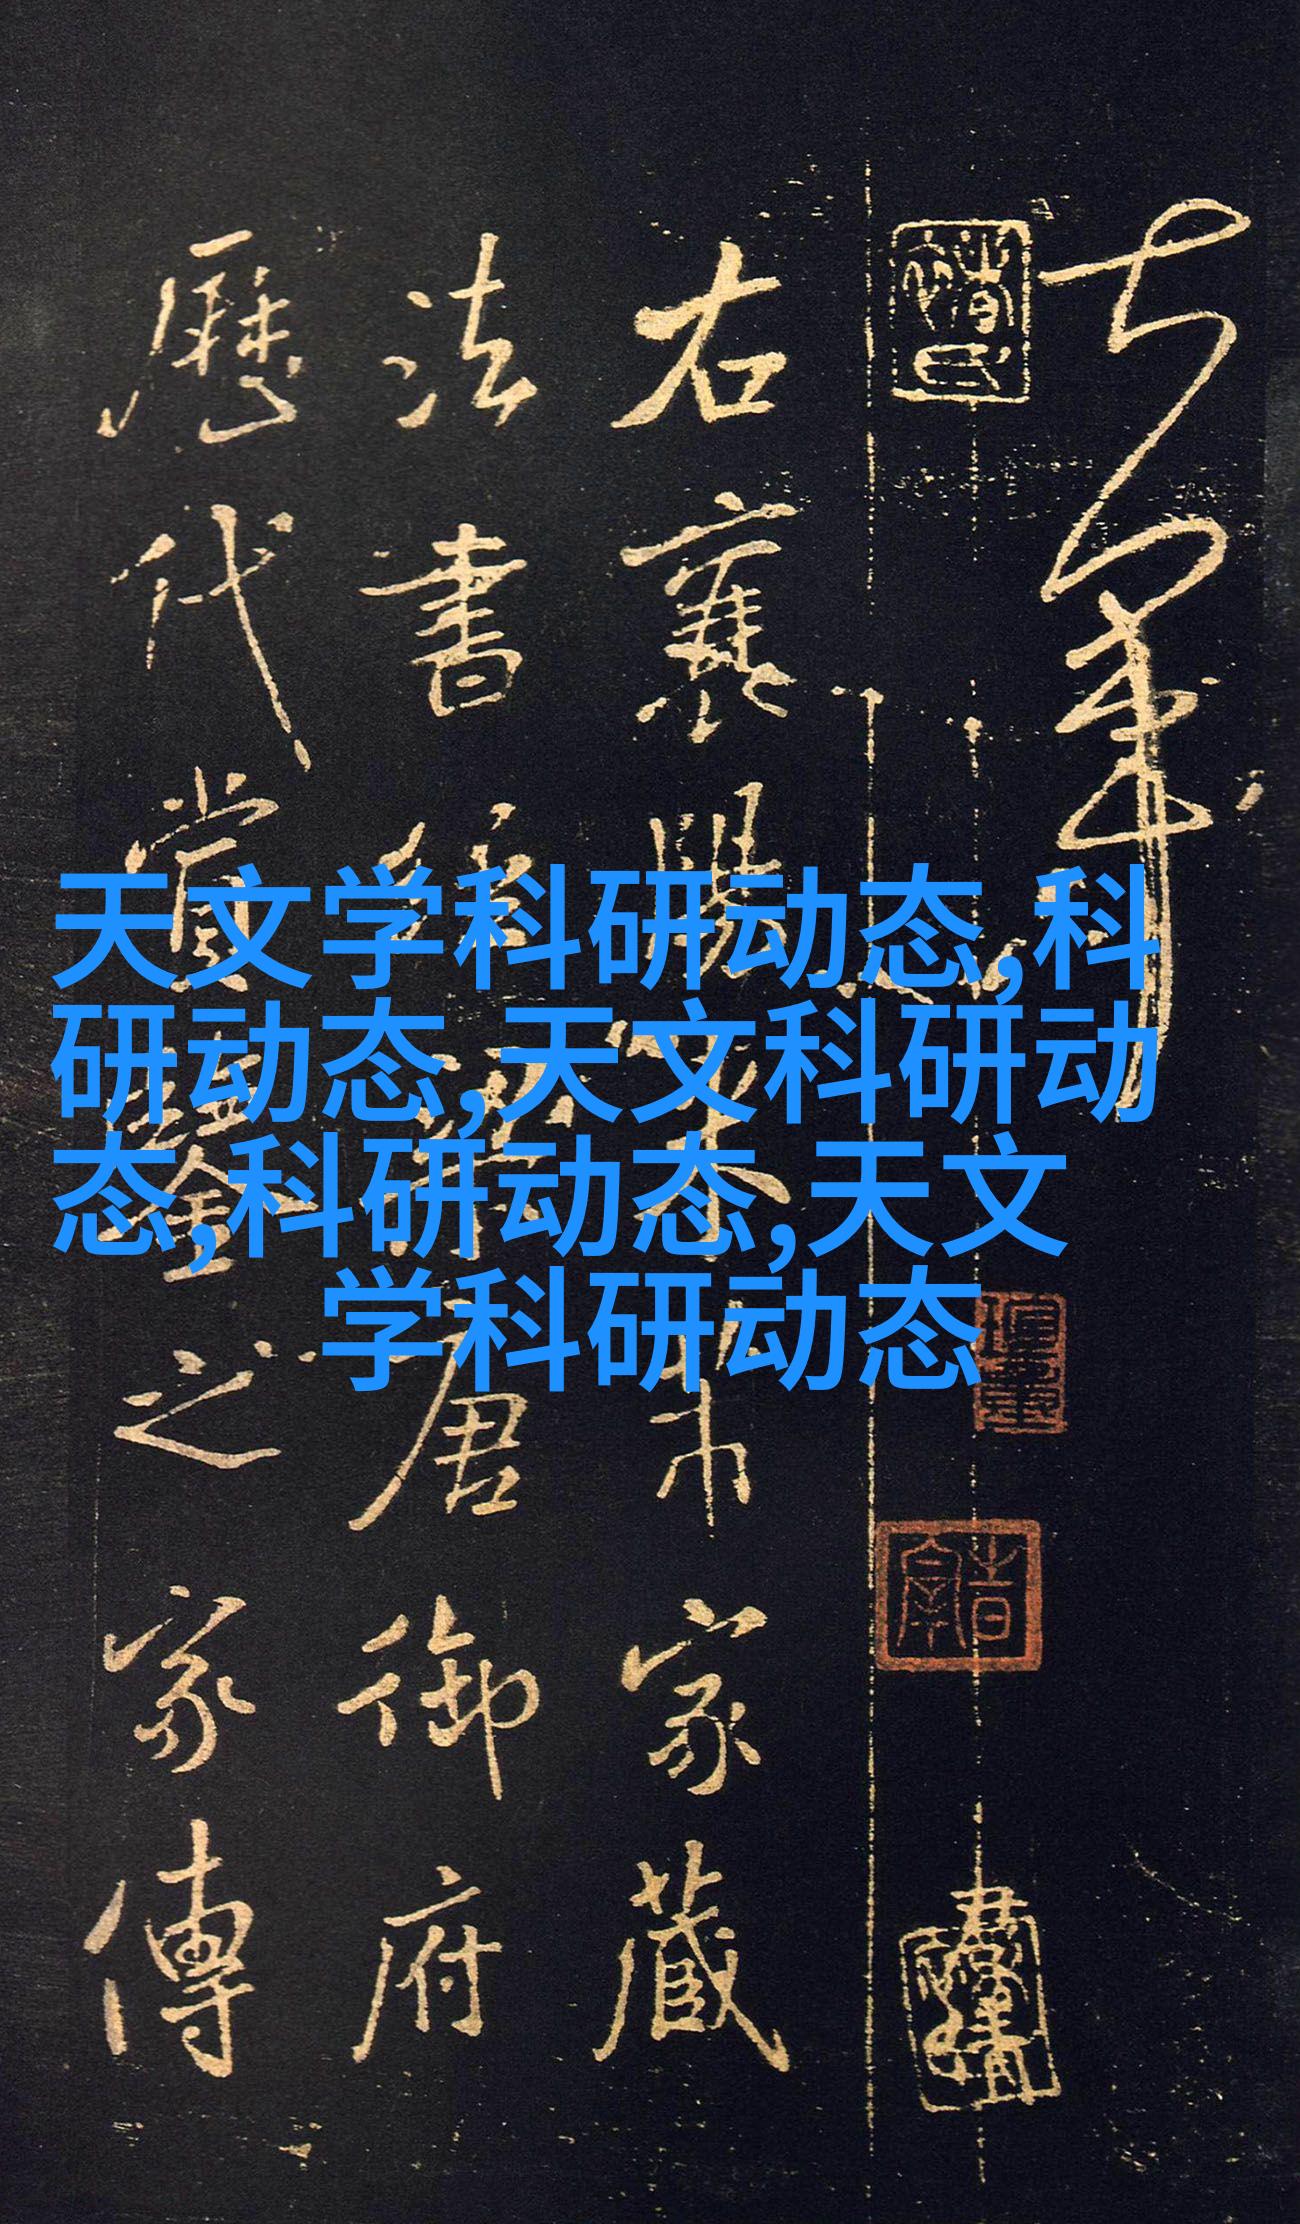 天文学科研动态,科
研动态,天文科研动
态,科研动态,天文
学科研动态
右襄陽米芾家藏
法書
唐御府
歷代賞鑒之家傳